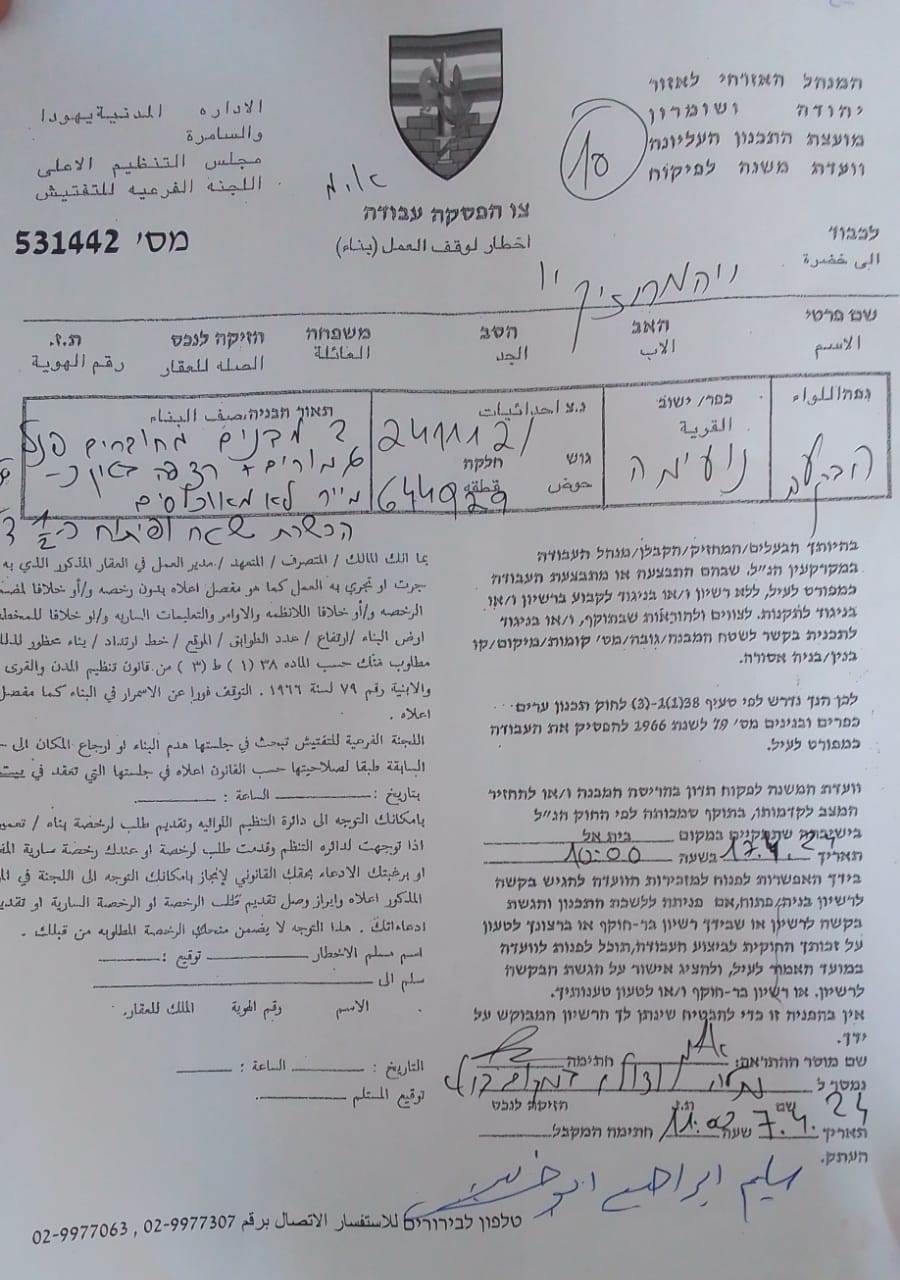 המנהל האזרחי לאזור
יהודה ושומרון
מועצת התכנון העליונה
וועדת משנה לפיקוח
10
الاداره المدنية يهودا
والسامرة
مجلس التنظيم الاعلى
اللجنة الفرعيه للتفتيش
צו הפסקת עבודה
اخطار لوقف العمل (بناء)
מס' 531442
לכבוד
الى حضرة
המחזיק
שם פרטי האב הסב משפחה חזיקה לנכס ת.ז.
الاسم الاب الجد العائلة الصله للعقار رقم الهوية
נפה اللواء
הבקעה
כפר/ ישוב
القرية
נועימה
נ.צ احداثيات
241112/
גוש חלקה
حوض قطعه
644929
תאור הבניה، صف البناء
2 מבנים מחוברים פנל
לא מאוכלסים
הכשרת שטח
בהיותך הבעלים/המחזיק/הקבלן/מנהל העבודה
במקרקעין הנ"ל. שבהם התבצעה או מתבצעת העבודה
כמפורט לעיל, ללא רשיון ו/או בניגוד לקבוע ברשיון ו/או
בניגוד לתקנות. לצווים ולהוראות שבתוקף, ו/או בניגוד
לתכנית בקשר לשטח המבנה/גובה/מס' קומות/מיקום/קו
בנין/בניה אסורה.
לכן הנך נדרש לפי סעיף 38(1)ג-(3) לחוק תכנון ערים
כפרים ובנינים מס' 79 לשנת 1966 להפסיק את העבודה
כמפורט לעיל.
וועדת המשנה לפקוח תדון בהריסת המבנה ו/או להחזיר
המצב לקדמותו, בתוקף סמכותה לפי החוק הנ"ל
בישיבתה שתתקיים במקום בית אל
תאריך 17.4.24 בשעה 10:00
בידך האפשרות לפנות למזכירות הוועדה להגיש בקשה
לרשיון בניה/פתוח, אם פניתה ללשכת התכנון והגשת
בקשה לרשיון או שבידך רשיון בר-תוקף או ברצונך לטעון
על זכותך החוקית לביצוע העבודה, תוכל לפנות לוועדה
במועד האמור לעיל, ולהציג אישור על הגשת הבקשה
לרשיון. או רשיון בר-תוקף ו/או לטעון טענותיך.
אין בהפניה זו כדי להבטיח שינתן לך הרשיון המבוקש על
ידך.
שם מוסר ההתראה: חתימה
נמסר ל
שם ת.ז. חזיקה לנכס
תאריך 7.4.24 שעה 11:02 חתימה המקבל
העתק.
بما انك المالك / المتصرف / المتعهد / مدير العمل في العقار المذكور الذي به
جرت او تجري به العمل كما هو مفصل اعلاه بدون رخصه و/أو خلافا
الرخصه و/أو خلافا للانظمه والاوامر والتعليمات الساريه و/او خلافا للمخطط
ارض البناء /ارتفاع / عدد الطوابق / الموقع / خط ارتداد / بناء محظور
مطلوب منك حسب الماده ٣٨ (١) ط (٣) من قانون تنظيم المدن والقرى
والابنية رقم ٧٩ لسنة ١٩٦٦ . التوقف فورا عن الاسمرار في البناء كما
اعلاه .
اللجنة الفرعية للتفتيش تبحث في جلستها هدم البناء او ارجاع المكان الى
السابقة طبقا لصلاحيتها حسب القانون اعلاه في جلستها التي تعقد في
بتاريخ : الساعة :
بإمكانك التوجه الى دائرة التنظيم اللوائيه وتقديم طلب لرخصة بناء /
اذا توجهت لدائره التنظم وقدمت طلب لرخصة او عندك رخصة سارية
او برغبتك الادعاء بحقك القانوني لإنجاز بامكانك التوجه الى اللجنة في
المذكور اعلاه وابراز وصل تقديم طلب الرخصة او الرخصة السارية او
ادعاءاتك . هذا التوجه لا يضمن منحك الرخصة المطلوبه من قبلك .
اسم مسلم الاخطار توقيع :
سلم الى
الاسم رقم الهوية الملك للعقار.
التاريخ : الساعة :
توقيع المستلم
سليم ابراهيم
טלפון לבירורים للاستفسار الاتصال برقم 02-9977307 , 02-9977063